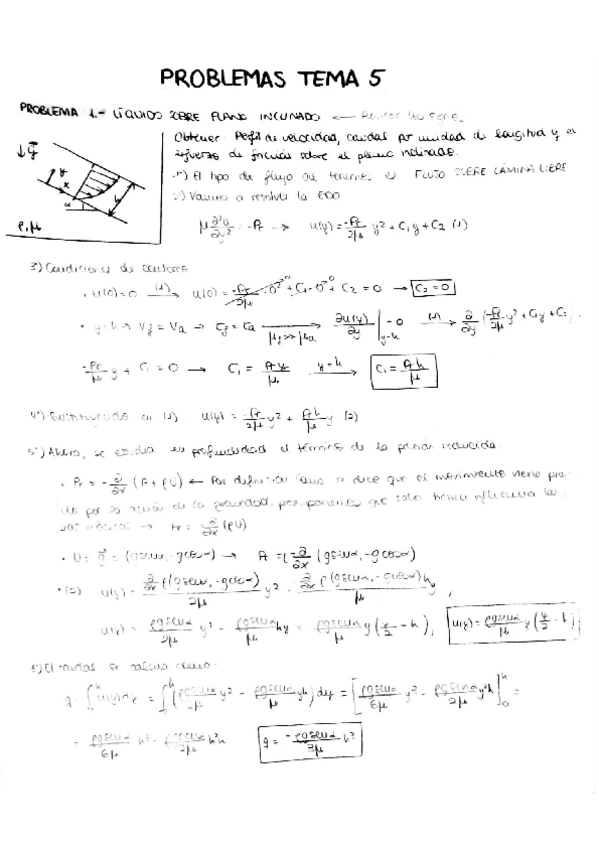 PROBLEMAS TEMA 5
PROBLEMA 1.- LÍQUIDOS SOBRE PLANO INCLINADO ←
Obtener: Perfil de velocidad, caudal por unidad de longitud y el
esfuerzo de fricción sobre el plano inclinado.
1º) El tipo de flujo que tenemos es FLUJO SOBRE LÁMINA LIBRE
2º) Vamos a resolver la EDO
μ ∂²u/∂y² = -Pr → u(y) = -Pr/2μ y² + C₁y + C₂ (1)
ρ, μ
3º) Condiciones de contorno
• u(0)=0 (1)→ u(0) = -Pr/2μ · 0² + C₁ · 0 + C₂ = 0 → C₂ = 0
• y=h → → μ >> μa ∂u(y)/∂y |y=h = 0 (1)→ ∂/∂y (-Pr/2μ y² + C₁y + C₂)
-Pr/μ y + C₁ = 0 → C₁ = Pr y/μ y=h→ C₁ = Pr h/μ
4º) Sustituyendo en (1) u(y) = -Pr/2μ y² + Pr h/μ y (2)
5º) Ahora, se estudia en profundidad el término de la presión reducida
• Pr = -∂/∂x (P + ρU) ← Por definición se dice que el movimiento viene
por la acción de la gravedad, que
→ Pr = -∂/∂x (ρU)
• U = g = (g senα, -g cosα) → Pr = -∂/∂x (g senα, -g cosα)
• (2) u(y) = ∂/∂x ρ(g senα, -g cosα)/2μ y² - ∂/∂x ρ(g senα, -g cosα)/μ hy,
u(y) = ρg senα/2μ y² - ρg senα/μ hy = ρg senα/μ y (y/2 - h), u(y) = ρg senα/μ y (y/2 - h)
6º) El caudal se calcula como:
q = ∫₀ʰ u(y) dy = ∫₀ʰ (ρg senα/2μ y² - ρg senα/μ yh) dy = [ρg senα/6μ y³ - ρg senα/2μ y²h]₀ʰ =
= ρg senα/6μ h³ - ρg senα/2μ h²h q = -ρg senα/3μ h³